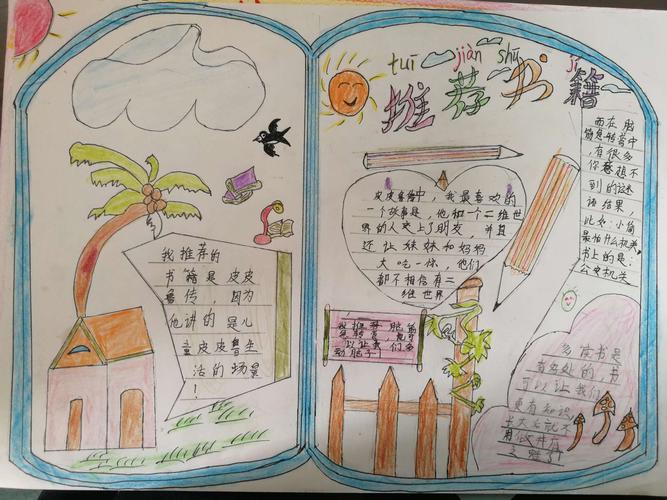 tuī jiàn shū jí
推荐书籍
我推荐的
书籍是皮皮
鲁传，因为
他讲的是儿
童皮皮鲁生
活的场景
！
皮皮鲁传中，我最喜欢的
一个故事是，他和一个二维世
界的人交上了朋友，并且
还让妹妹和妈妈
大吃一惊，他们
都不相信有二
维世界
而在脑
筋急转弯中
，有很多
你意想不
到的谜
语结果，
比如：小偷
最怕什么机关
书上的是：
公安机关
我推荐脑筋
急转弯，
以让我们多
动脑子！
多读书是
有好处的，书
可以让我们
更有知识
长大后就不
用